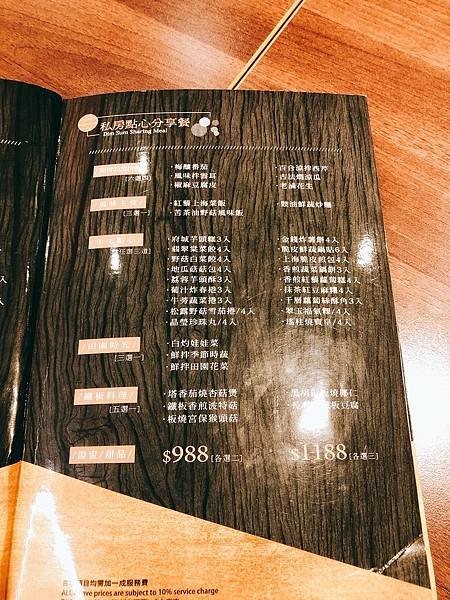 私房點心分享餐
Dim Sum Sharing Meal
[六選四]
·梅釀番茄
·百合涼拌西芹
·風味拌雲耳
·椒麻豆腐皮
·老滷花生
[三選一]
·紅藜上海菜飯
·豉油鮮蔬炒麵
·苦茶油野菇風味飯
·府城芋頭糕3入
·金錢炸薯餅4入
·翡翠粿粽4入
·脆皮鮮蔬鍋貼6入
·野菇白菜餃4入
·上海脆皮煎包4入
·地瓜菇菇包4入
·香煎蔬菜鍋餅3入
·荔茸芋頭酥3入
·香煎紅藜蘿蔔糕4入
·葡汁炸春捲3入
·抹茶紅豆麻糬4入
·牛蒡蔬菜捲3入
·千層蘿蔔絲酥角3入
·松露野菇雪茄捲/4入
·翠玉福氣粿/4入
·晶瑩珍珠丸/4入
·瑤柱燒賣皇/4入
/田園時光/
[三選一]
·白灼娃娃菜
·鮮拌季節時蔬
·鮮拌田園花菜
/鐵板料理/
[五選一]
·塔香茄燒杏菇煲
·鐵板香煎波特菇
·板燒宮保猴頭菇
/湯盅/甜品/
$988[各選二]
$1188[各選三]
目均需加一成服務費
prices are subject to 10% service charge